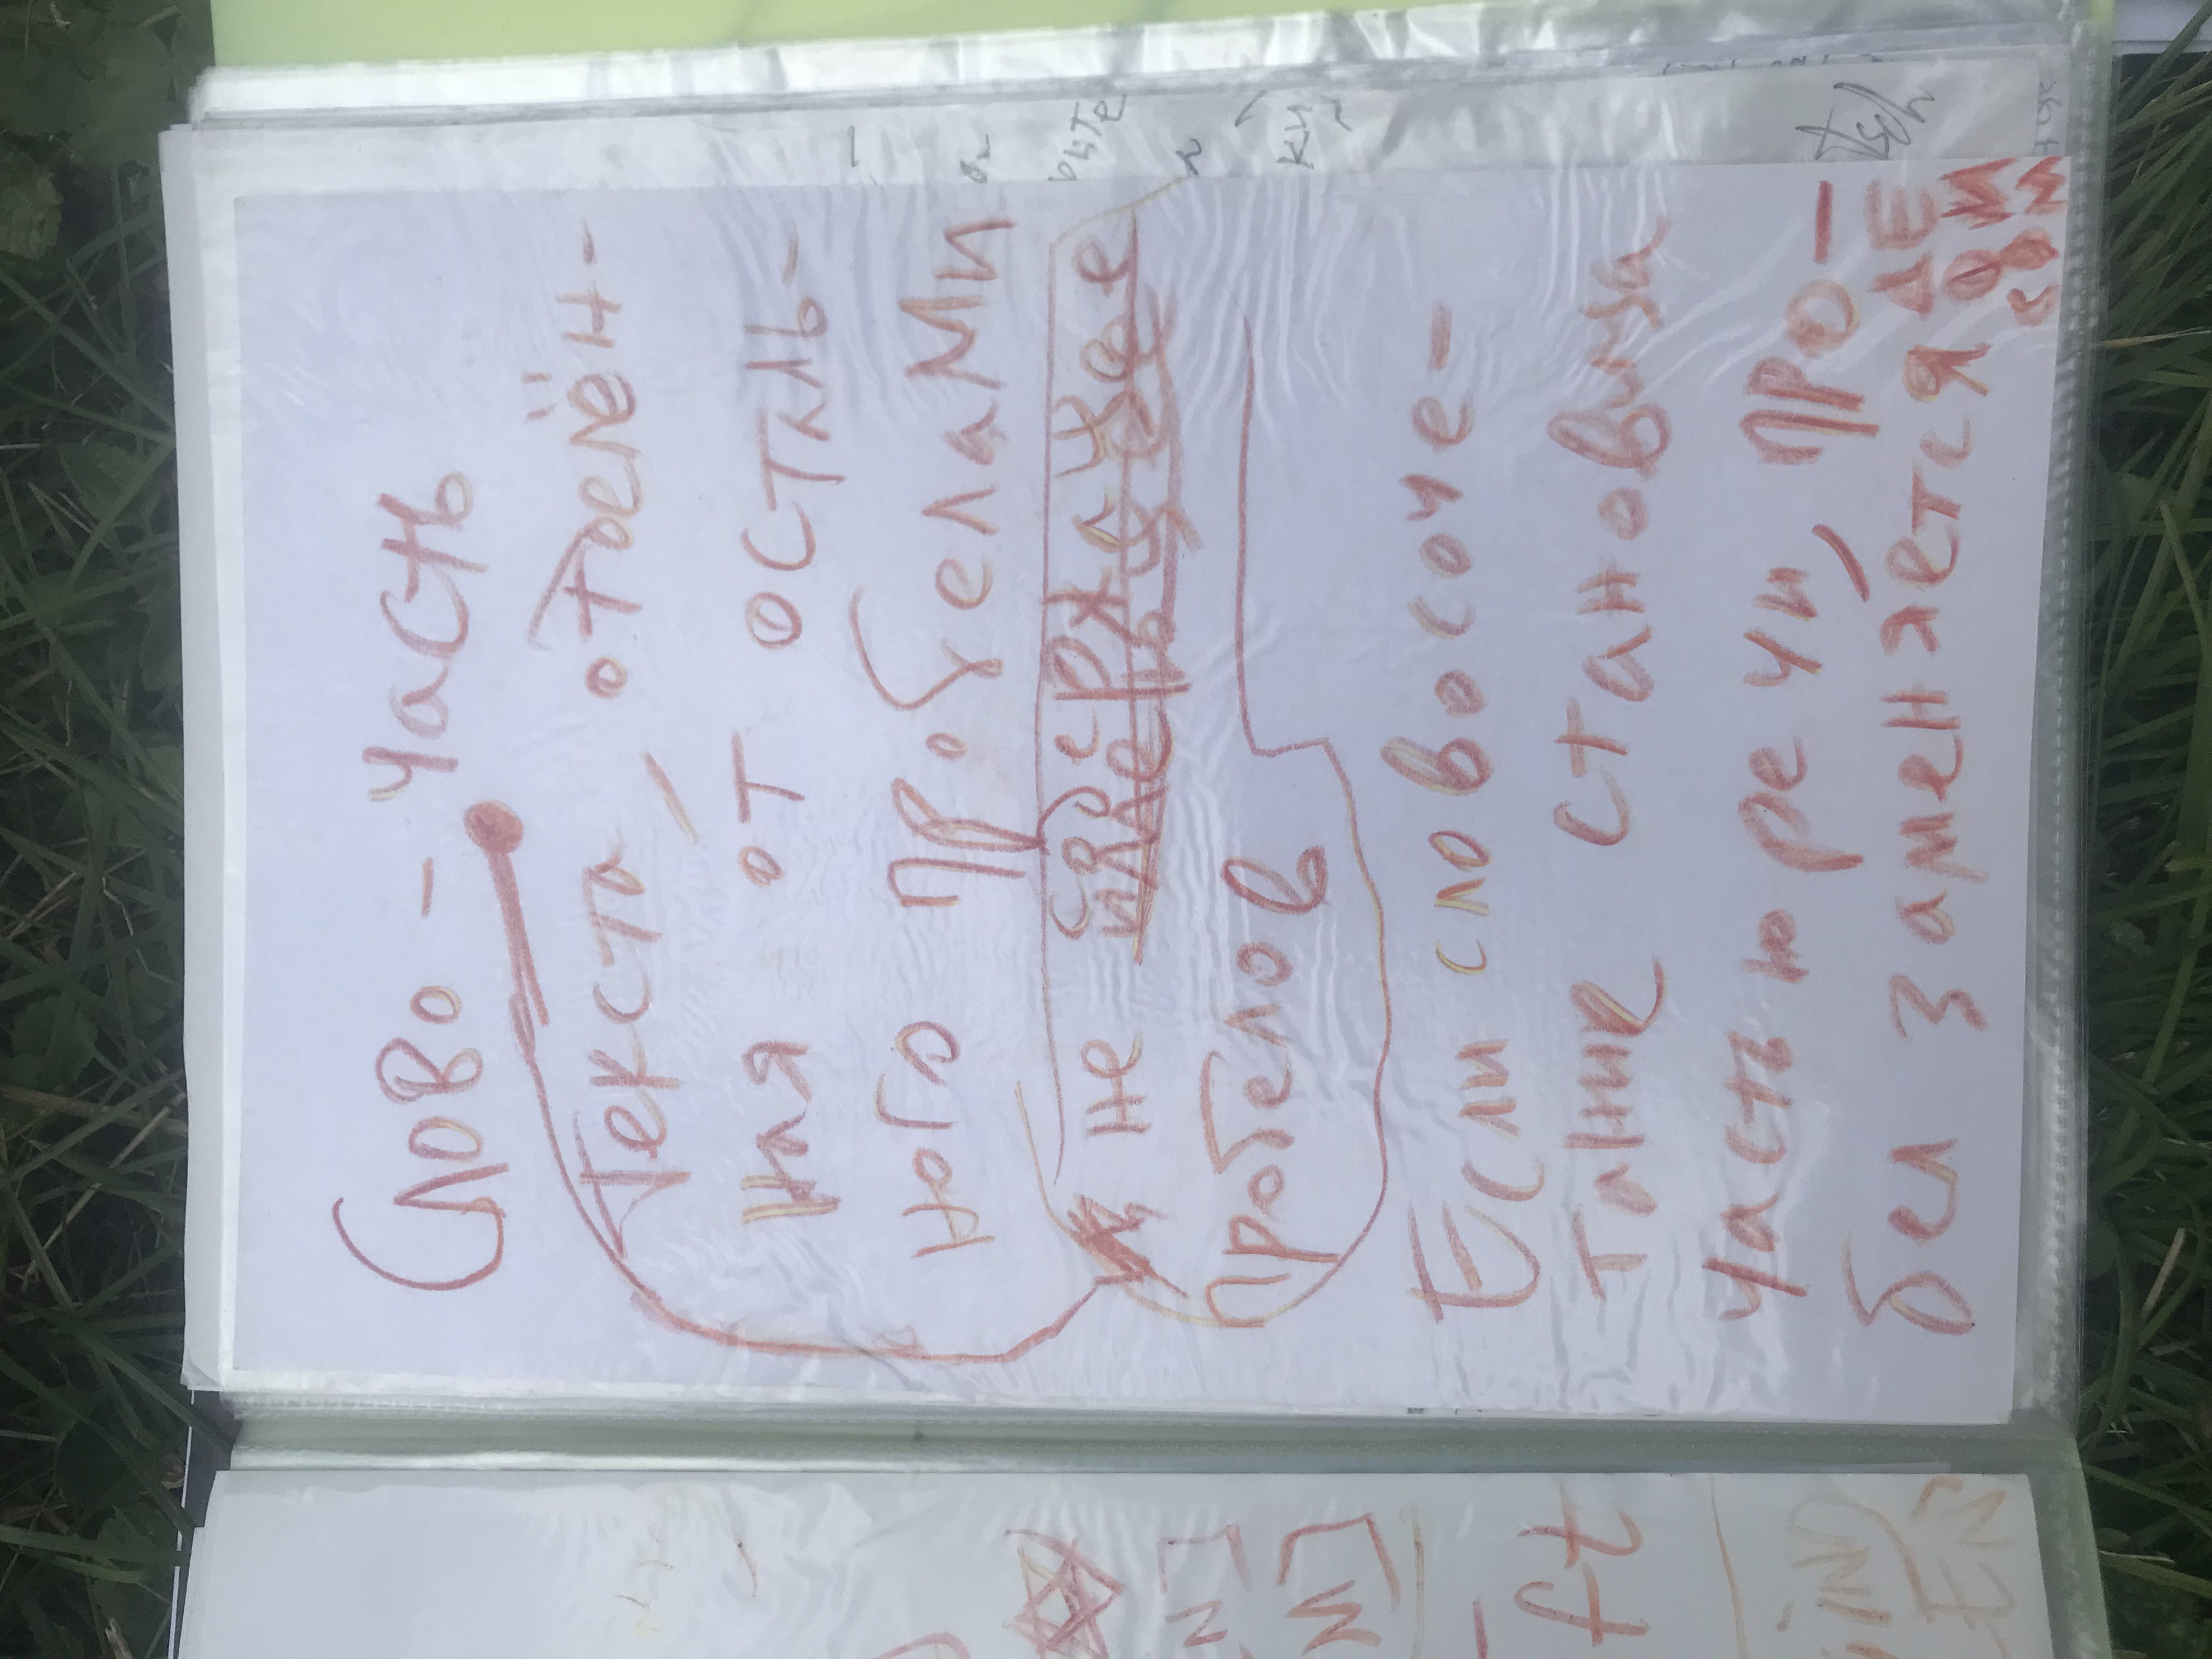 Слово - часть
текста, отделён-
ная от осталь-
ного пробелами
и не содержащее
пробелов
Если словосоче-
тание становица
частью речи, про-
бел заменяется ДЕ
ФИ
СОМ
N]
M]
ft
IND
EN